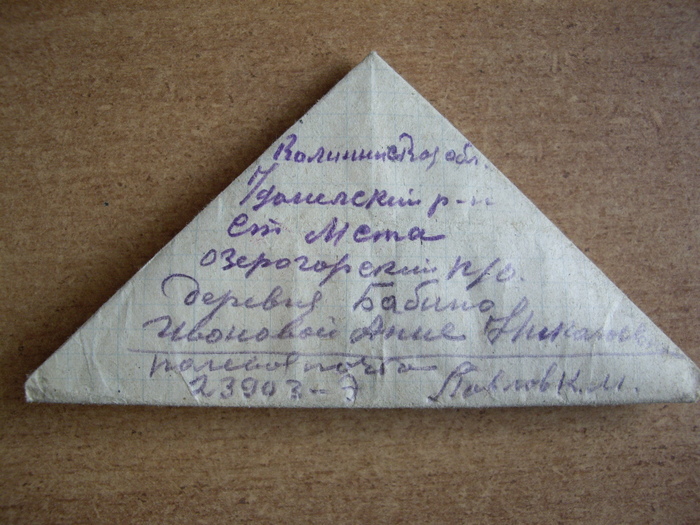 Калининская обл.
Удомельский р-н
ст Мста
озерогорский п/о.
деревня Бабино
Ивановой Анне
полевая почта
23903-Э Павлов К.М.